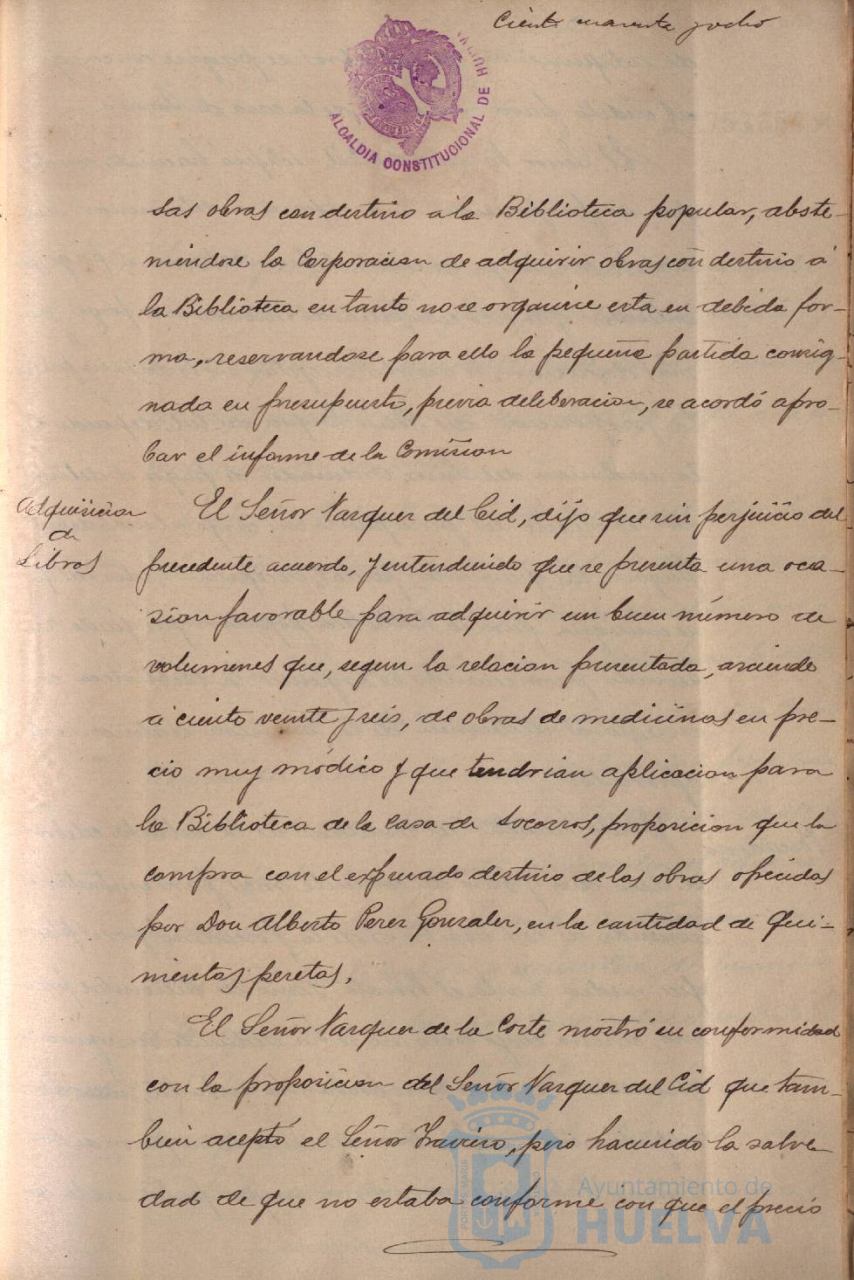 Ciento cuarenta y ocho
ALCALDIA CONSTITUCIONAL DE HUELVA
sas obras con destino a la Biblioteca popular, abste-
niendose la Corporacion de adquirir obras con destino á
la Biblioteca en tanto no se organice esta en debida for-
ma, reservandose para ello la pequeña partida consig-
nada en presupuesto, previa deliberacion, se acordó apro-
bar el informe de la Comision
Adquisicion
de
Libros
El Señor Vazquez del Cid, dijo que sin perjuicio del
precedente acuerdo, y entendiendo que se presenta una oca-
sion favorable para adquirir un buen número de
volumenes que, segun la relacion presentada, asciende
á ciento veinte y seis, de obras de medicinas en pre-
cio muy módico y que tendrian aplicacion para
la Biblioteca de la Casa de Socorros, proposicion que la
compra con el expresado destino de las obras ofrecidas
por Don Alberto Perez Gonzalez, en la cantidad de qui-
nientas pesetas.
El Señor Vazquez de la Corte mostró su conformidad
con la proposicion del Señor Vazquez del Cid que tam-
bien aceptó el Señor, pero haciendo la salve-
dad de que no estaba conforme con que el precio
Ayuntamiento de
HUELVA